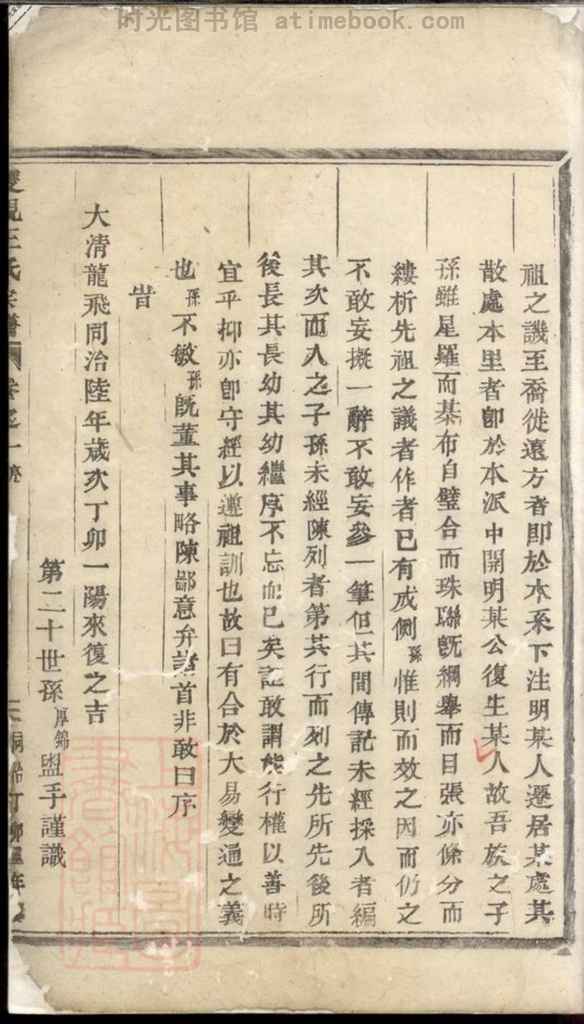 时光图书馆 atimebook.com
祖之譏至喬徙遠方者即於本系下注明某人遷居某處其
散處本里者卽於本派中開明某公復生某人故吾族之子
孫雖星羅而棊布自璧合而珠聯旣綱舉而目張亦條分而
縷析先祖之議者作者已有成側孫惟則而效之因而仍之
不敢妄擬一辭不敢妄參一筆但其間傳記未經採入者編
其次而入之子孫未經陳列者第其行而列之先所先後所
後長其長幼其幼繼序不忘而已矣詎敢謂能行權以善時
宜乎抑亦卽守經以遵祖訓也故曰有合於大易變通之義
也孫不敏孫旣董其事略陳鄙意弁諸首非敢曰序
旹
大清龍飛同治陸年歲次丁卯一陽來復之吉
第二十世孫厚錦盥手謹識
王氏宗譜